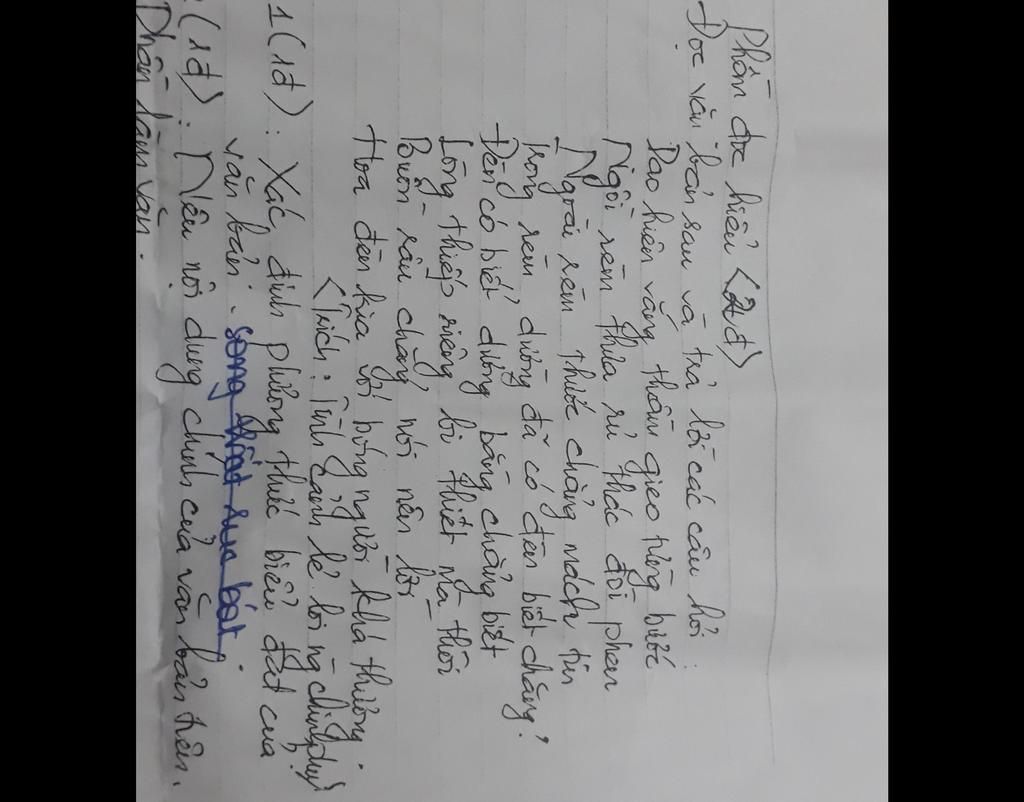 Phần đọc hiểu (2đ)
Đọc văn bản sau và trả lời các câu hỏi:
Dạo hiên vắng thầm gieo từng bước
Ngồi rèm thưa rủ thác đòi phen
Ngoài rèm thước chẳng mách tin
Trong rèm, dường đã có đèn biết chăng?
Đèn có biết dường bằng chẳng biết
Lòng thiếp riêng bi thiết mà thôi
Buồn rầu chẳng nói nên lời
Hoa đèn kia với bóng người khá thương.
(Trích: Tình cảnh lẻ loi ng chinh phụ)
1 (1đ): Xác định phương thức biểu đạt của
văn bản. song thất lục bát.
(1đ): Nêu nội dung chính của văn bản trên.
Phần làm văn.